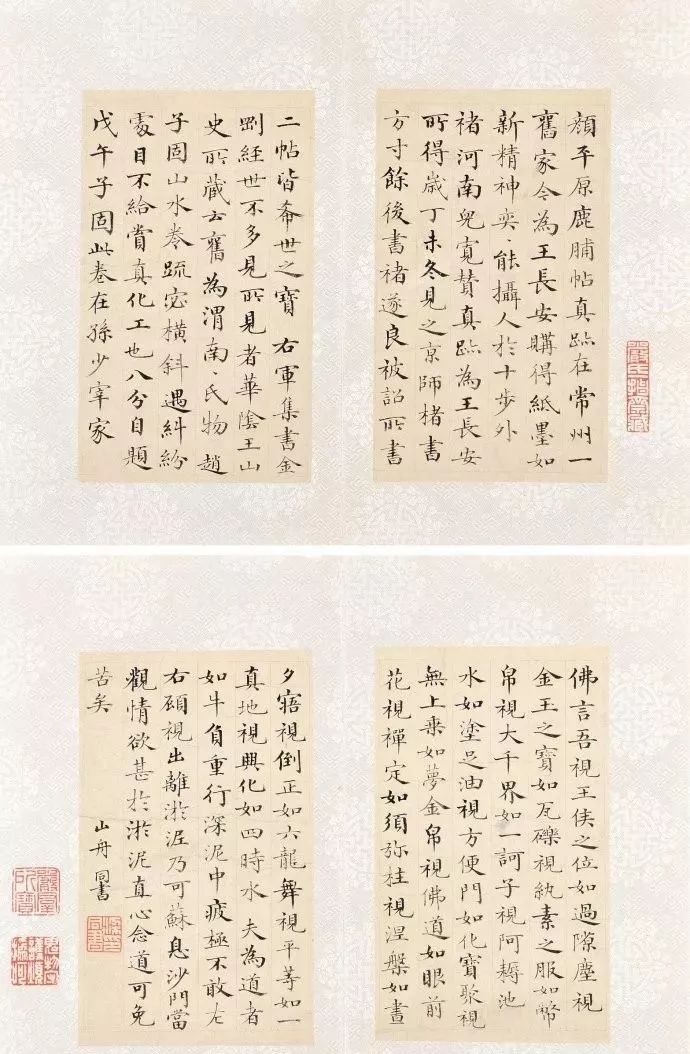 顏平原鹿脯帖真跡在常州一
舊家今為王長安購得紙墨如
新精神奕〻能攝人於十步外
褚河南兒寬贊真跡為王長安
所得歲丁未冬見之京師楮書
方寸餘後書褚遂良被詔所書
二帖皆希世之寶 右軍集書金
剛經世不多見所見者華陰王山
史所藏云舊為渭南〻氏物 趙
子固山水卷疏密橫斜遇糾紛
處目不給賞真化工也八分自題
戊午子固此卷在孫少宰家
佛言吾視王侯之位如過隙塵視
金玉之寶如瓦礫視紈素之服如幣
帛視大千界如一訶子視阿耨池
水如塗足油視方便門如化寶聚視
無上乘如夢金帛視佛道如眼前
花視禪定如須弥柱視涅槃如晝
夕寤視倒正如六龍舞視平等如一
真地視興化如四時水 夫為道者
如牛負重行深泥中疲極不敢左
右顧視出離淤泥乃可蘇息沙門當
觀情欲甚於淤泥直心念道可免
苦矣
山舟同書